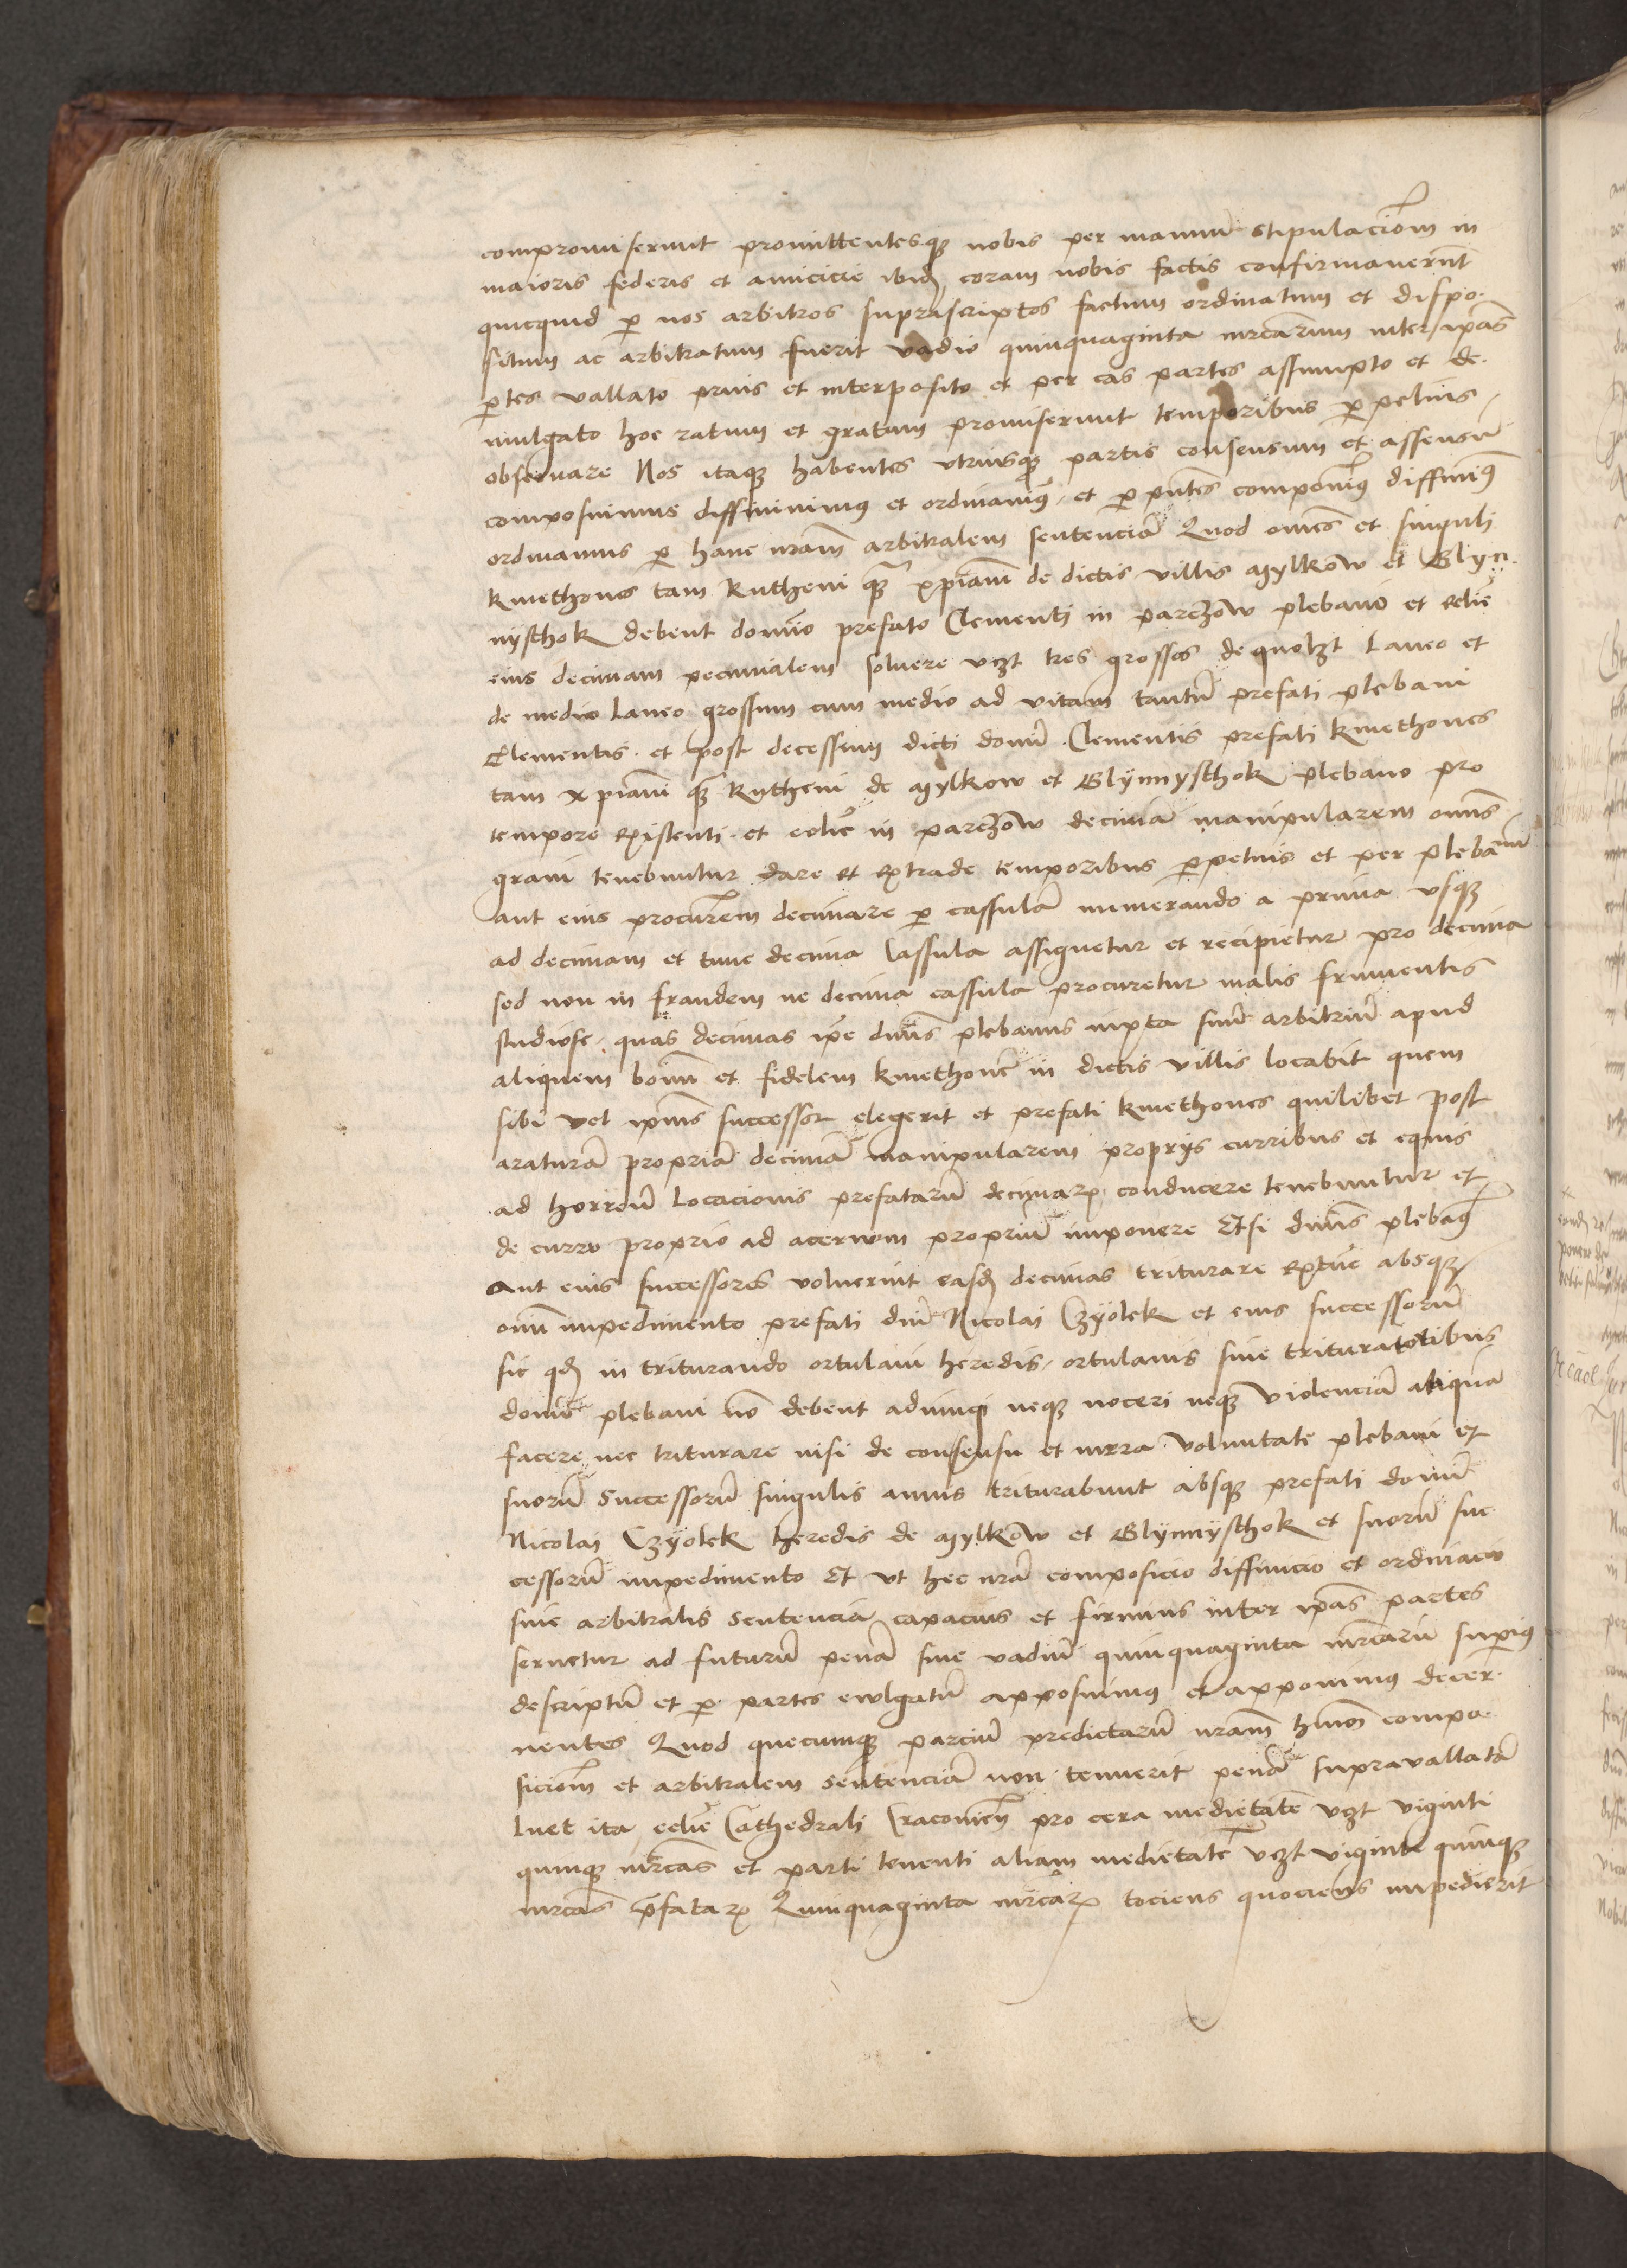 compromiserunt promittentesq₃ nobis per manuū stipulacōm in
maioris federis et amicicie ibidē coram nobis factis confirmauerūt
quicquid ꝑ nos arbitros suprascriptos factum ordinatum et dispo-
situm ac arbitratum fuerit vadio quinquaginta mrcarum inter ip̄as
ꝑtes vallato prius et interposito et per eas partes assumpto et de-
uulgato hoc ratum et gratum promiserunt temporibus ꝑpetuis
obseruare Nos itaq₃ habentes vtriusq₃ partis consensum et assensū
composuimus diffiniuimus et ordinauimꝰ et ꝑ pn̄tes componimꝰ diffinimꝰ
ordinamus ꝑ hanc nr̄am arbitralem sentenciā Quod omēs et singuli
kmethones tam Rutheni q̄₃ xp̄iani de dictis villis Mylkow et Glyn-
nyschok debent domino prefato Clementi in parczow plebano et ecclie
eius decimam pecunialem soluere vczt tres grossos de quolzt Laneo et
de medio Laneo grossum cum medio ad vitam tantū prefati plebani
Clementis et post decessum dicti domī Clementis prefati kmethones
tam xp̄iani q̄₃ Rutheni de Mylkow et Glynnyschok plebano pro
tempore existenti et ecclie in parczow decimā manipularem omīs
grani tenebuntur dare et extrade temporibus ꝑpetuis et per plebanum
aut eius procurēm decimare ꝑ cassulā numerando a prima vsq₃
ad decimam et tunc decima Cassula assignetur et recipietur pro decima
sed non in fraudem ne decima cassula procuretur malis frumentis
studiose quas decimas ip̄e dn̄us plebanus iuxta suū arbitriū apud
aliquem bonū et fidelem kmethonē in dictis villis locabit quem
sibi vel ip̄ius successor elegerit et prefati kmethones quilibet post
araturā propriā decimā manipularem proprijs curribus et equis
ad horreū Locacionis prefatarū decimaꝝ conducere tenebuntur et
de curru proprio ad aceruum propriū imponere Et si dn̄us plebanꝰ
Aut eius successores voluerint easdē decimas triturare extunc absq₃
omī impedimento prefati dn̄i Nicolai Czyolek et eius successorū
sic qd in triturando ortulani heredis ortulanis siue trituratotibus
domī plebani nō debent adiungi neq₃ noceri neq₃ violenciā aliquā
facere nec triturare nisi de consensu et mera voluntate plebani et
suorū Successorū singulis annis triturabunt absq₃ prefati domī
Nicolai Czyolek heredis de Mylkow et Glynnyschok et suorū suc-
cessorū impedimento Et vt hec nr̄a composicio diffinicio et ordinacio
siue arbitralis Sentencia capacius et firmius inter ip̄as partes
seruetur ad futurū penā siue vadiū quinquaginta mrcarū suꝑius
descriptū et ꝑ partes ewlgatū apposuimus et apponimus decer-
nentes Quod quecumq₃ parciū predictarū nr̄am hm̄oi compo-
sicōm et arbitralem sentenciā non tenuerit penā supravallatā
luet ita ecclie Cathedrali Cracouien̄ pro cera medietatē vczt viginti
quinq₃ mrcas et parti tenenti aliam medietatē vczt viginti quinq₃
mrcas p̄fataꝝ Quinquaginta mrcaꝝ tociens quociens impedierit